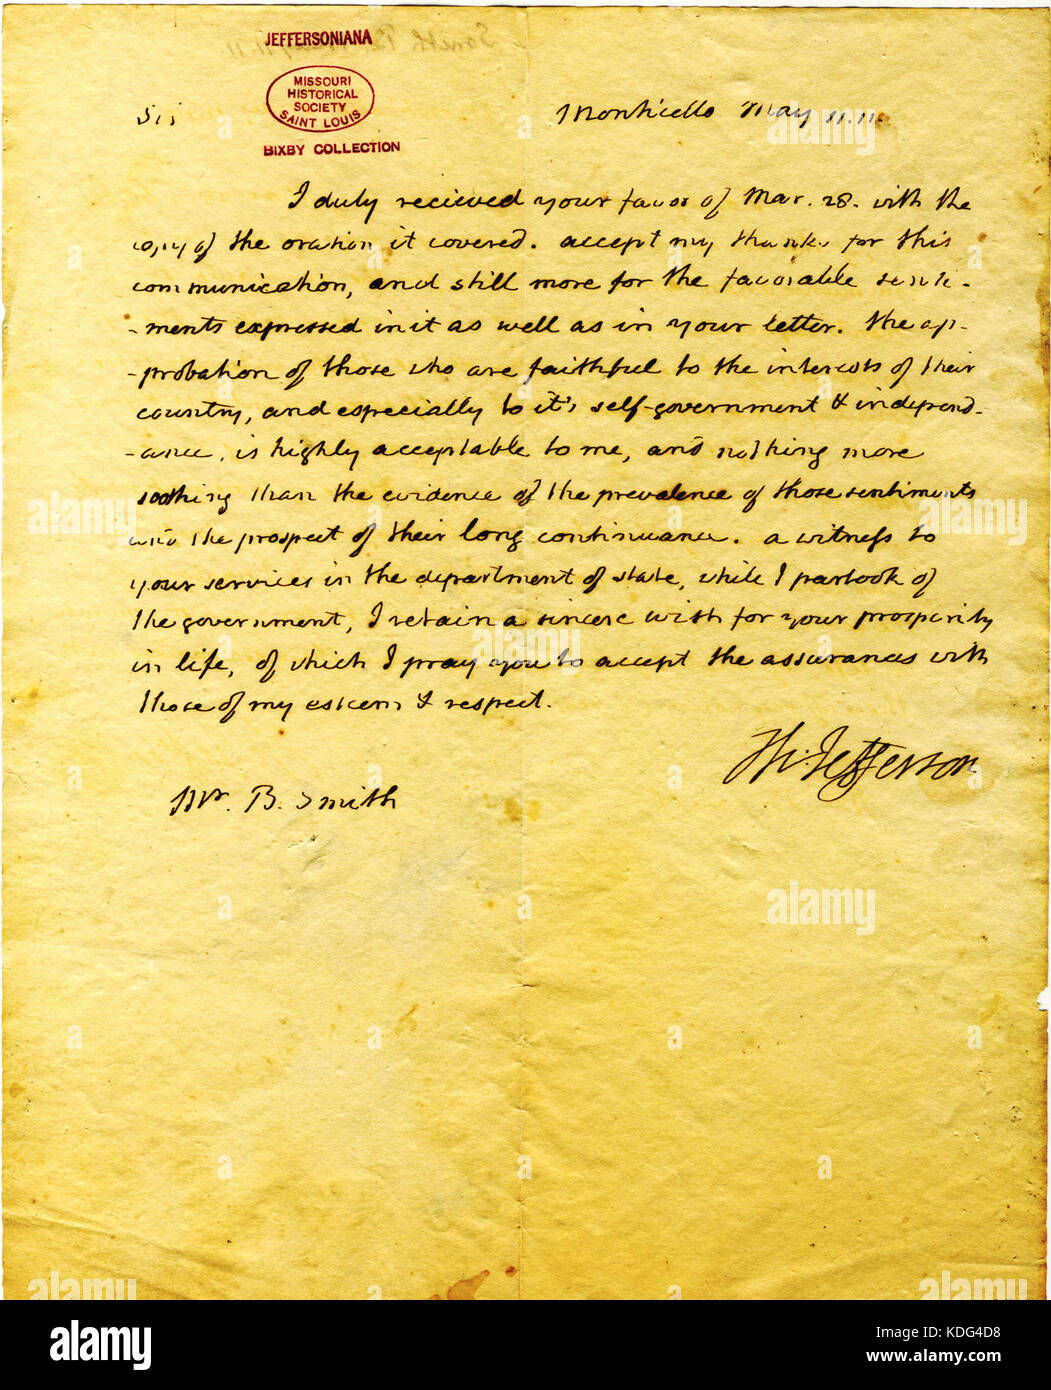 JEFFERSONIANA
MISSOURI
HISTORICAL
SOCIETY
SAINT LOUIS
BIXBY COLLECTION
Sir
Monticello May 11. 11.
I duly recieved your favor of Mar. 28. with the
copy of the oration it covered. accept my thanks for this
communication, and still more for the favorable senti-
-ments expressed in it as well as in your letter. the ap-
-probation of those who are faithful to the interests of their
country, and especially to it's self-government & independ-
-ance, is highly acceptable to me, and nothing more
soothing than the evidence of the prevalence of those sentiments
and the prospect of their long continuance. a witness to
your services in the department of state, while I partook of
the government, I retain a sincere wish for your prosperity
in life, of which I pray you to accept the assurances with
those of my esteem & respect.
Th: Jefferson
Mr. B. Smith
alamy
a
alamy stock photo
KDG4D8
www.alamy.com